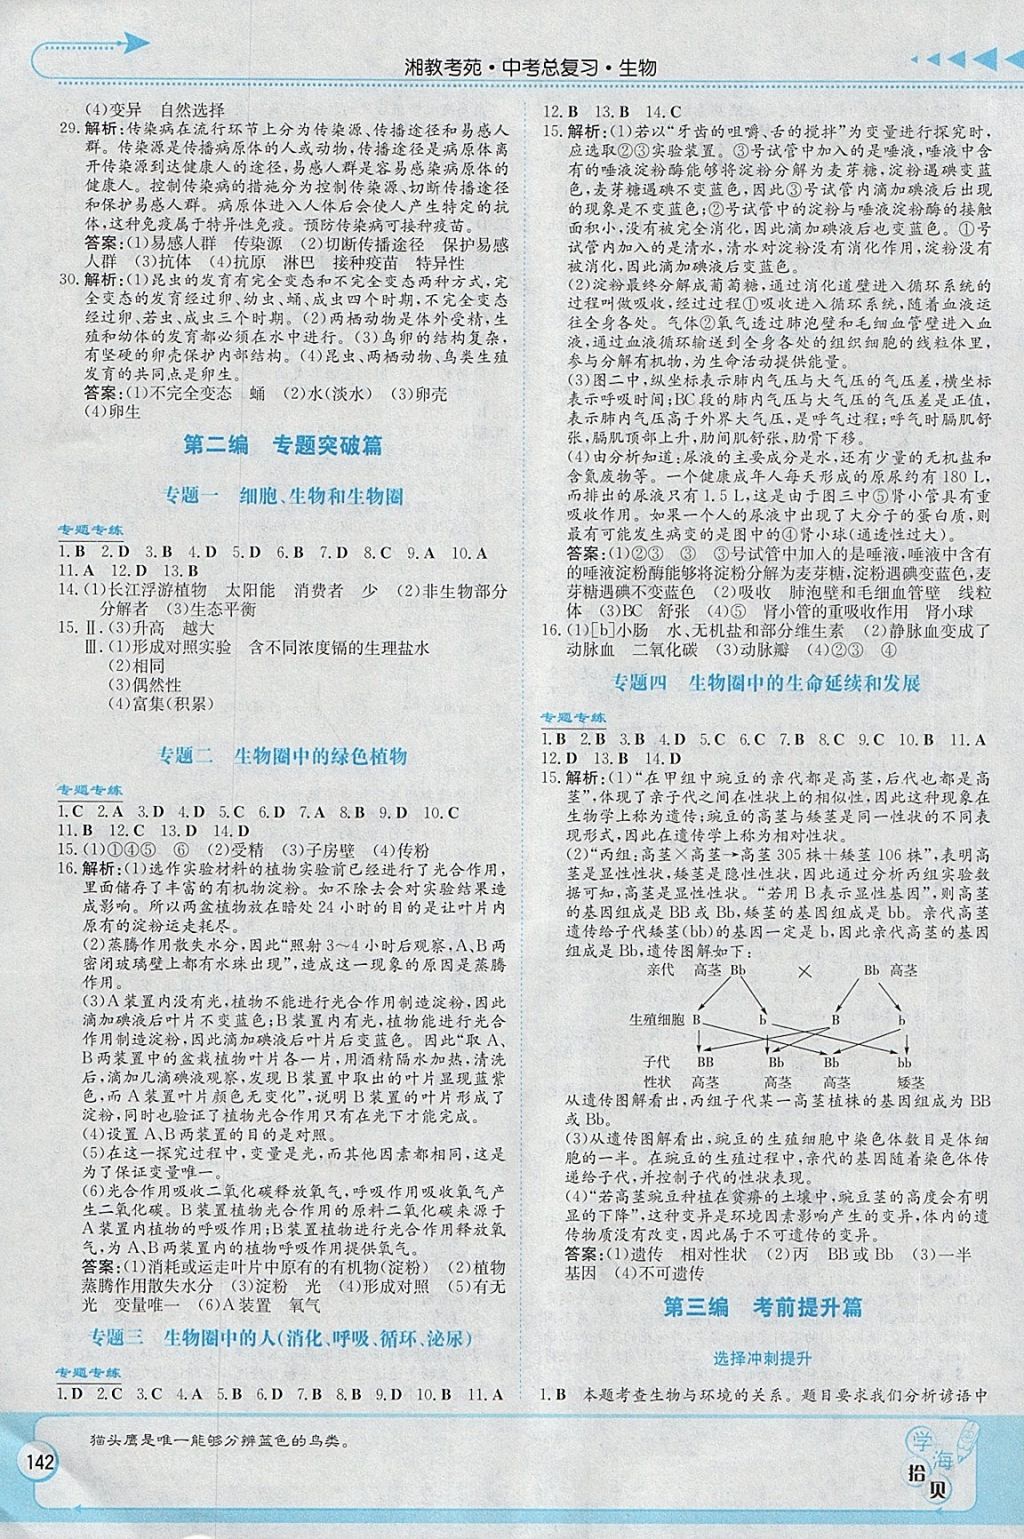 湘教考苑·中考总复习·生物
(4)变异　自然选择
29. 解析:传染病在流行环节上分为传染源、传播途径和易感人
群。传染源是传播病原体的人或动物,传播途径是病原体离
开传染源到达健康人的途径,易感人群是容易感染病原体的
健康人。控制传染病的措施分为控制传染源、切断传播途径
和保护易感人群。病原体进入人体后会使人产生特定的抗
体,这种免疫属于特异性免疫。预防传染病可接种疫苗。
答案:(1)易感人群　传染源　(2)切断传播途径　保护易感
人群　(3)抗体　(4)抗原　淋巴　接种疫苗　特异性
30. 解析:(1)昆虫的发育有完全变态和不完全变态两种方式,完
全变态的发育经过卵、幼虫、蛹、成虫四个时期,不完全变态的
经过卵、若虫、成虫三个时期。(2)两栖动物是体外受精,生
殖和幼体的发育都必须在水中进行。(3)鸟卵的结构复杂,
有坚硬的卵壳保护内部结构。(4)昆虫、两栖动物、鸟类生殖
发育的共同点是卵生。
答案:(1)不完全变态　蛹　(2)水(淡水)　(3)卵壳
(4)卵生
第二编　专题突破篇
专题一　细胞、生物和生物圈
专题专练
1. B　2. D　3. B　4. D　5. D　6. B　7. D　8. C　9. A　10. A
11. A　12. D　13. B
14. (1)长江浮游植物　太阳能　消费者　少　(2)非生物部分
分解者　(3)生态平衡
15. Ⅱ. (3)升高　越大
Ⅲ. (1)形成对照实验　含不同浓度镉的生理盐水
(2)相同
(3)偶然性
(4)富集(积累)
专题二　生物圈中的绿色植物
专题专练
1. C　2. A　3. D　4. D　5. C　6. D　7. A　8. B　9. D　10. C
11. B　12. C　13. D　14. D
15. (1)①④⑤　⑥　(2)受精　(3)子房壁　(4)传粉
16. 解析:(1)选作实验材料的植物实验前已经进行了光合作用,
里面储存了丰富的有机物淀粉。如不除去会对实验结果造
成影响。所以两盆植物放在暗处 24 小时的目的是让叶片内
原有的淀粉运走耗尽。
(2)蒸腾作用散失水分,因此“照射 3～4 小时后观察,A、B两
密闭玻璃壁上都有水珠出现”,造成这一现象的原因是蒸腾
作用。
(3)A装置内没有光,植物不能进行光合作用制造淀粉,因此
滴加碘液后叶片不变蓝色;B装置内有光,植物能进行光合
作用制造淀粉,因此滴加碘液后叶片后变蓝色。因此“取A、
B两装置中的盆栽植物叶片各一片,用酒精隔水加热,清洗
后,滴加几滴碘液观察,发现B装置中取出的叶片显现蓝紫
色,而A装置叶片颜色无变化”,说明B装置的叶片形成了
淀粉,同时也验证了植物光合作用只有在光下才能完成。
(4)设置A、B两装置的目的是对照。
(5)在这一探究过程中,变量是光,而其他因素都相同,这是
为了保证变量唯一。
(6)光合作用吸收二氧化碳释放氧气,呼吸作用吸收氧气产
生二氧化碳。B装置植物光合作用的原料二氧化碳来源于
A装置内植物的呼吸作用;B装置植物进行光合作用释放氧
气,为A、B两装置内的植物呼吸作用提供氧气。
答案:(1)消耗或运走叶片中原有的有机物(淀粉)　(2)植物
蒸腾作用散失水分　(3)淀粉　光　(4)形成对照　(5)有无
光　变量唯一　(6)A装置　氧气
专题三　生物圈中的人(消化、呼吸、循环、泌尿)
专题专练
1. D　2. C　3. C　4. D　5. C　6. C　7. D　8. B　9. B　10. B　11. A
12. B　13. B　14. C
15. 解析:(1)若以“牙齿的咀嚼、舌的搅拌”为变量进行探究时,
应选取②③实验装置。③号试管中加入的是唾液,唾液中含
有的唾液淀粉酶能够将淀粉分解为麦芽糖,淀粉遇碘变蓝
色,麦芽糖遇碘不变蓝色,因此③号试管内滴加碘液后出现
的现象是不变蓝色;②号试管中的淀粉与唾液淀粉酶的接触
面积小,没有被完全消化,因此滴加碘液后也变蓝色。①号
试管内加入的是清水,清水对淀粉没有消化作用,淀粉没有
被消化,因此滴加碘液后变蓝色。
(2)淀粉最终分解成葡萄糖,通过消化道壁进入循环系统的
过程叫做吸收,经过过程①吸收进入循环系统,随着血液运
往全身各处。气体②氧气透过肺泡壁和毛细血管壁进入血
液,通过血液循环输送到全身各处的组织细胞的线粒体里,
参与分解有机物,为生命活动提供能量。
(3)图二中,纵坐标表示肺内气压与大气压的气压差,横坐标
表示呼吸时间;BC段的肺内气压与大气压的气压差是正值,
表示肺内气压高于外界大气压,是呼气过程;呼气时膈肌舒
张,膈肌顶部上升,肋间肌舒张,肋骨下移。
(4)由分析知道:尿液的主要成分是水,还有少量的无机盐和
含氮废物等。一个健康成年人每天形成的原尿大约有 180 L,
而排出的尿液只有 1.5 L,这是由于图三中⑤肾小管具有重
吸收作用。如果一个人的尿液中出现了大分子的蛋白质,则
最有可能发生病变的是图中的④肾小球(通透性过大)。
答案:(1)②③　③　③号试管中加入的是唾液,唾液中含有
的唾液淀粉酶能够将淀粉分解为麦芽糖,淀粉遇碘变蓝色,麦
芽糖遇碘不变蓝色　(2)吸收　肺泡壁和毛细血管壁　线粒
体　(3)BC　舒张　(4)⑤　肾小管的重吸收作用　肾小球
16. (1)[b]小肠　水、无机盐和部分维生素　(2)静脉血变成了
动脉血　二氧化碳　(3)动脉瓣　(4)②③　④
专题四　生物圈中的生命延续和发展
专题专练
1. B　2. B　3. B　4. D　5. C　6. C　7. B　8. C　9. C　10. B　11. A
12. D　13. B　14. D
15. 解析:(1)“在甲组中豌豆的亲代都是高茎,后代也都是高
茎”,体现了亲子代之间在性状上的相似性,因此这种现象在
生物学上称为遗传;豌豆的高茎与矮茎是同一性状的不同表
现形式,因此在遗传学上称为相对性状。
(2)“丙组:高茎×高茎→高茎 305 株+矮茎 106 株”,表明高
茎是显性性状,矮茎是隐性性状,因此通过分析丙组实验数
据可知,高茎是显性性状。“若用B表示显性基因”,则高茎
的基因组成是BB或Bb,矮茎的基因组成是bb。亲代高茎
遗传给子代矮茎(bb)的基因一定是b,因此亲代高茎的基因
组成是Bb,遗传图解如下:
亲代　高茎　Bb　×　Bb　高茎
生殖细胞 B　b　B　b
子代　BB　Bb　Bb　bb
性状　高茎　高茎　高茎　矮茎
从遗传图解看出,丙组子代某一高茎植株的基因组成为BB
或Bb。
(3)从遗传图解看出,豌豆的生殖细胞中染色体数目是体细
胞的一半。在豌豆的生殖过程中,亲代的基因随着染色体传
递给子代,并控制子代的性状表现。
(4)“若高茎豌豆种植在贫瘠的土壤中,豌豆的高度会有明
显的下降”,这种变异是环境因素影响产生的变异,体内的遗
传物质没有改变,因此属于不可遗传的变异。
答案:(1)遗传　相对性状　(2)丙　BB或Bb　(3)一半
基因　(4)不可遗传
第三编　考前提升篇
选择冲刺提升
1. B　本题考查生物与环境的关系。题目要求我们分析谚语中
猫头鹰是唯一能够分辨蓝色的鸟类。
142
学海
拾贝